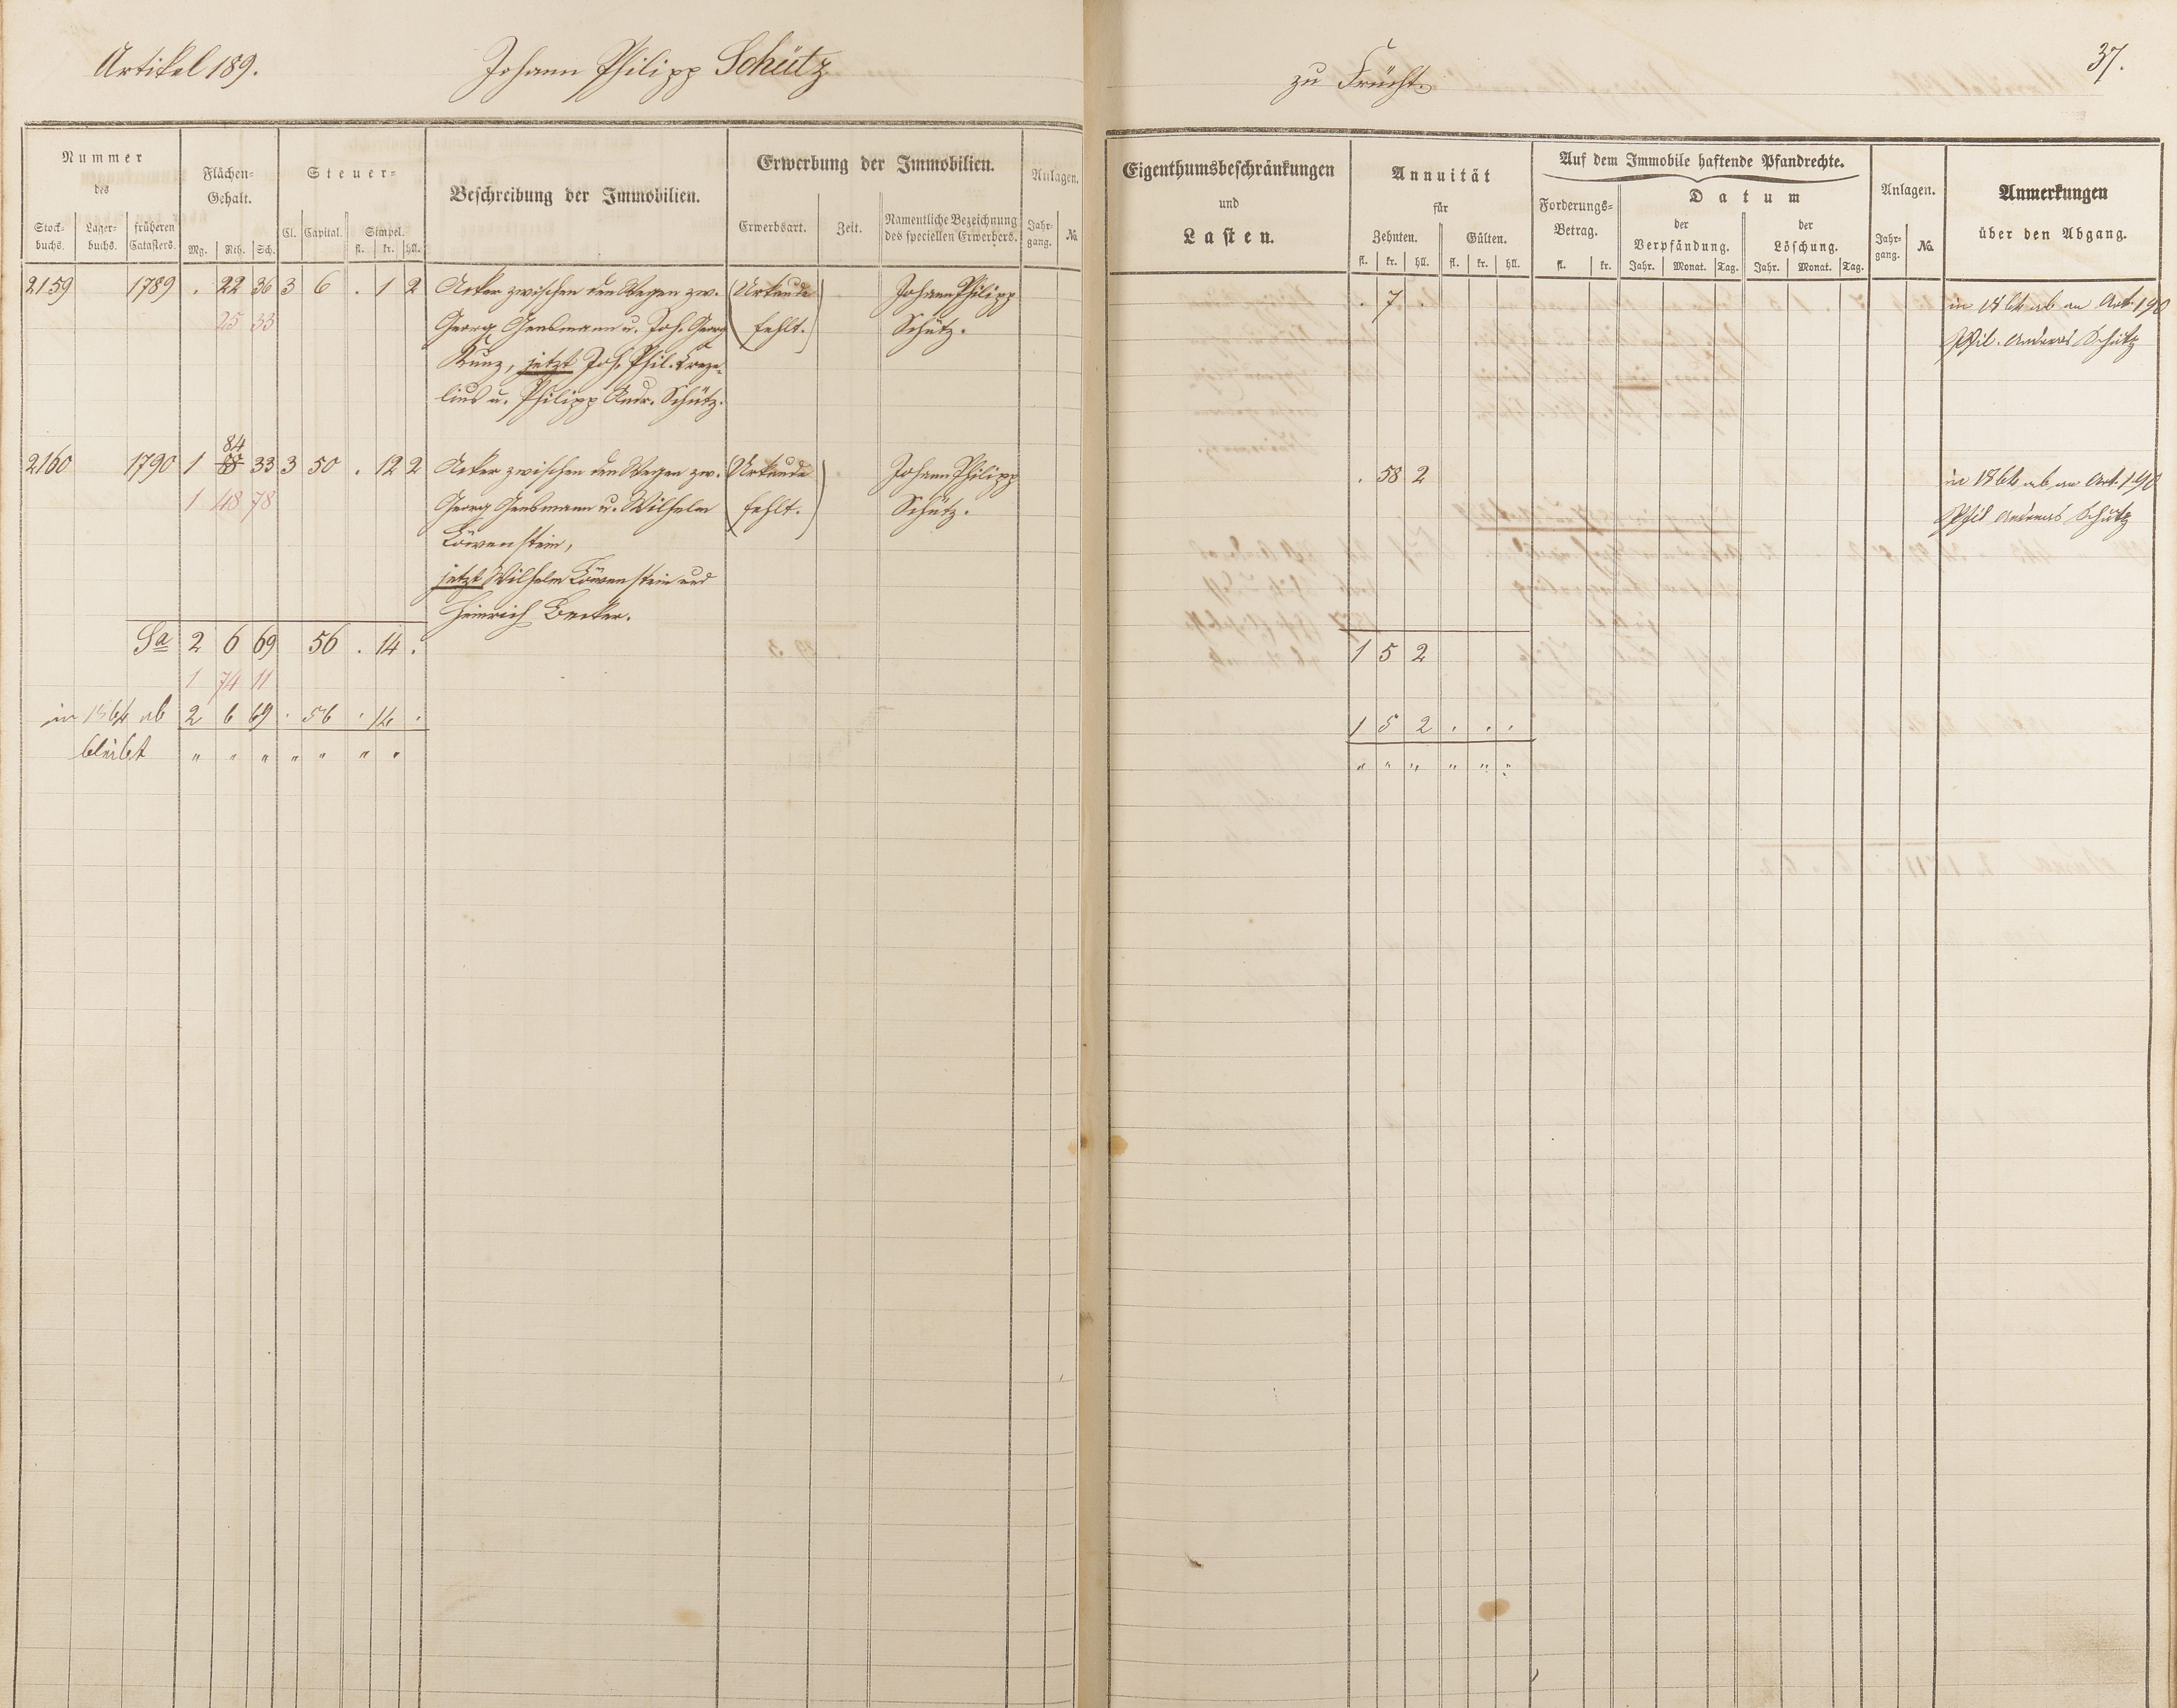 Artikel 189. Johann Philipp Schütz zu Frücht. 37.
Nummer des
Stock-buchs. Lager-buchs. früheren Catasters.
Flächen-Gehalt.
Mg. Rth. Sch.
Steuer-
Cl. Capital. Simpel. fl. kr. hll.
Beschreibung der Immobilien.
Erwerbung der Immobilien.
Erwerbsart. Zeit. Namentliche Bezeichnung des speciellen Erwerbers.
Anlagen.
Jahr-gang. No.
Eigenthumsbeschränkungen
und
Lasten.
Annuität
für
Zehnten. Gülten.
fl. kr. hll. fl. kr. hll.
Auf dem Immobile haftende Pfandrechte.
Forderungs-Betrag. fl. kr.
Datum
der Verpfändung. der Löschung.
Jahr. Monat. Tag. Jahr. Monat. Tag.
Anlagen.
Jahr-gang. No.
Anmerkungen
über den Abgang.
2159 1789 . 22 36 3 6 . 1 2 Acker zwischen den Wegen zw. (Urkunde Johann Philipp . 7 . in 1864 ab an Art. 190
25 33 Georg Gensmann u. Joh. Georg fehlt.) Schütz. Phil. Andreas Schütz
Kunz, jetzt Joh. Phil.
lius u. Philipp Andr. Schütz.
84
2160 1790 1 33 3 50 . 12 2 Acker zwischen den Wegen zw. (Urkunde Johann Philipp . 58 2 in 1864 ab an Art. 190
1 48 78 Georg Gensmann u. Wilhelm fehlt.) Schütz. Phil Andreas Schütz
Löwenstein,
jetzt Wilhelm Löwenstein und
Heinrich Becker.
Sa 2 6 69 56 . 14 . 1 5 2
1 74 11
in 1864 ab 2 6 69 . 56 . 14 . 1 5 2 . . .
bleibt " " " " " " " " " " " " "